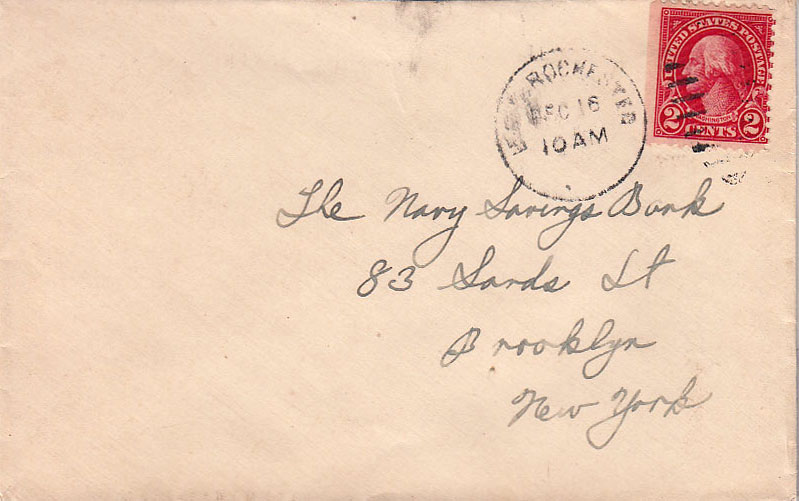 UNITED STATES POSTAGE
WASHINGTON
2 CENTS 2
ROCHESTER
DEC 16
10 AM
The Navy Savings Bank
83 Sands St
Brooklyn
New York